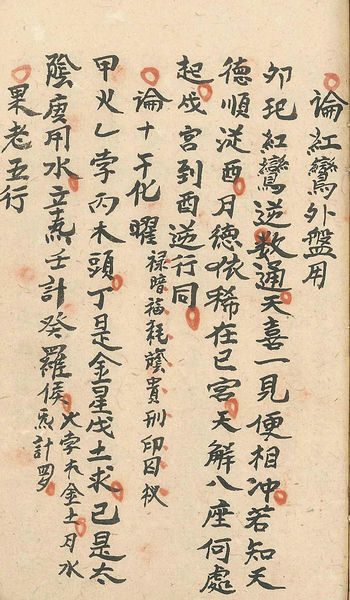 論紅鸞外盤用
卯起紅鸞逆数通天喜一見便相冲若知天
德順從酉月德依稀在巳宮天解八座何處
起戌宮到酉逆行同
論十干化曜祿暗福耗蔭貴刑印囚权
甲火乙孛丙木頭丁是金星戊土求己是太
陰庚用水辛炁壬計癸羅侯火孛木金土月水炁計罗
果老五行